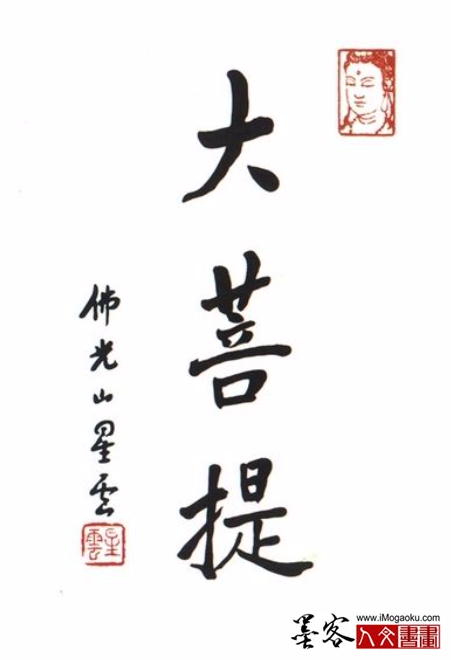 大菩提
佛光山星雲
星雲
www.iMogaoku.com
墨客
人文書畫